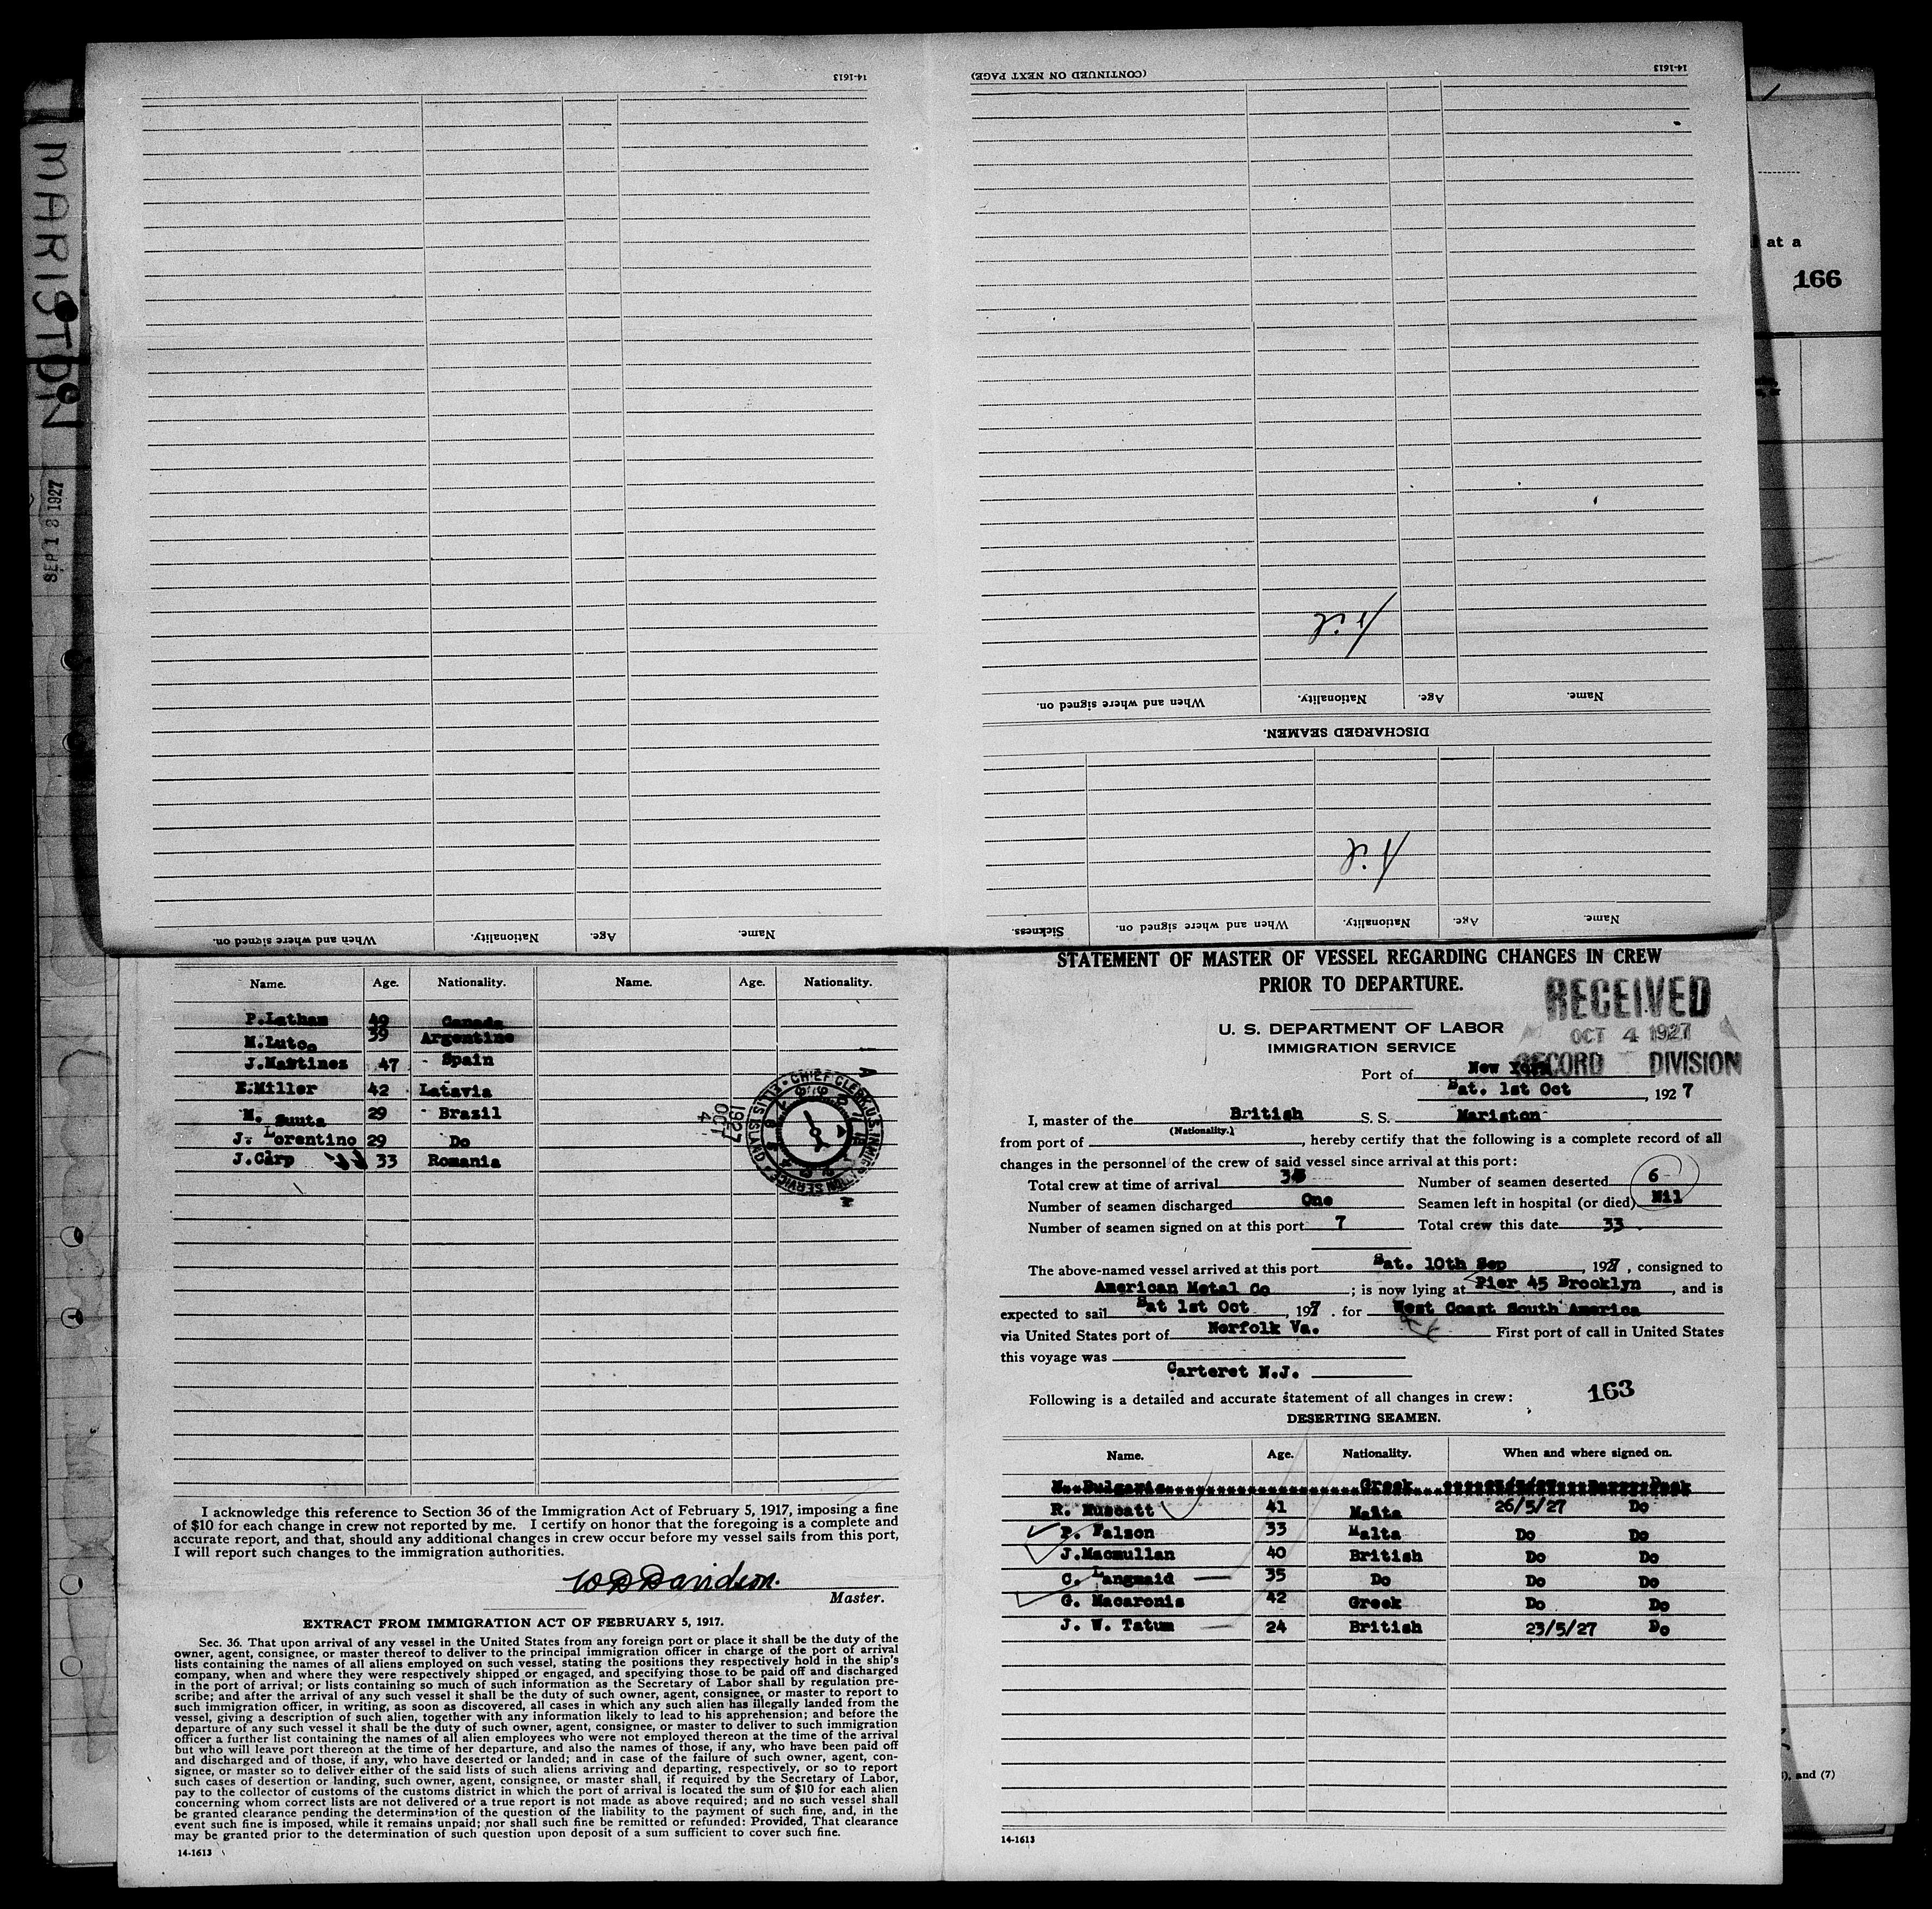 MARISTON
SEP 13 1927
at a
166
), and (7)
14-1613
(CONTINUED ON NEXT PAGE)
14-1613
Nil
When and where signed on. Nationality. Age. Name.
DISCHARGED SEAMEN.
Nil
Sickness. When and where signed on. Nationality. Age. Name.
When and where signed on. Nationality. Age. Name.
Name. Age. Nationality. Name. Age. Nationality.
P.Latham 49 Canada
M.Luto 39 Argentine
J.Martinez 47 - Spain
E.Miller 42 Latavia
M. Suuta 29 - Brazil
J. Lorentino 29 Do
J.Carp 33 Romania
CHIEF CLERK U.S. IMMIGRATION SERVICE ELLIS ISLAND
1927 OCT 4
I acknowledge this reference to Section 36 of the Immigration Act of February 5, 1917, imposing a fine
of $10 for each change in crew not reported by me. I certify on honor that the foregoing is a complete and
accurate report, and that, should any additional changes in crew occur before my vessel sails from this port,
I will report such changes to the immigration authorities.
W D Davidson.
Master.
EXTRACT FROM IMMIGRATION ACT OF FEBRUARY 5, 1917.
Sec. 36. That upon arrival of any vessel in the United States from any foreign port or place it shall be the duty of the
owner, agent, consignee, or master thereof to deliver to the principal immigration officer in charge of the port of arrival
lists containing the names of all aliens employed on such vessel, stating the positions they respectively hold in the ship's
company, when and where they were respectively shipped or engaged, and specifying those to be paid off and discharged
in the port of arrival; or lists containing so much of such information as the Secretary of Labor shall by regulation pre-
scribe; and after the arrival of any such vessel it shall be the duty of such owner, agent, consignee, or master to report to
such immigration officer, in writing, as soon as discovered, all cases in which any such alien has illegally landed from the
vessel, giving a description of such alien, together with any information likely to lead to his apprehension; and before the
departure of any such vessel it shall be the duty of such owner, agent, consignee, or master to deliver to such immigration
officer a further list containing the names of all alien employees who were not employed thereon at the time of the arrival
but who will leave port thereon at the time of her departure, and also the names of those, if any, who have been paid off
and discharged and of those, if any, who have deserted or landed; and in case of the failure of such owner, agent, con-
signee, or master so to deliver either of the said lists of such aliens arriving and departing, respectively, or so to report
such cases of desertion or landing, such owner, agent, consignee, or master shall, if required by the Secretary of Labor,
pay to the collector of customs of the customs district in which the port of arrival is located the sum of $10 for each alien
concerning whom correct lists are not delivered or a true report is not made as above required; and no such vessel shall
be granted clearance pending the determination of the question of the liability to the payment of such fine, and, in the
event such fine is imposed, while it remains unpaid; nor shall such fine be remitted or refunded: Provided, That clearance
may be granted prior to the determination of such question upon deposit of a sum sufficient to cover such fine.
14-1613
STATEMENT OF MASTER OF VESSEL REGARDING CHANGES IN CREW
PRIOR TO DEPARTURE.
RECEIVED
OCT 4 1927
RECORD DIVISION
U. S. DEPARTMENT OF LABOR
IMMIGRATION SERVICE
Port of New York
Sat. 1st Oct, 1927
I, master of the British S. S. Mariston
(Nationality.)
from port of , hereby certify that the following is a complete record of all
changes in the personnel of the crew of said vessel since arrival at this port:
Total crew at time of arrival Number of seamen deserted 6
Number of seamen discharged One Seamen left in hospital (or died) Nil
Number of seamen signed on at this port 7 Total crew this date 33
The above-named vessel arrived at this port Sat. 10th Sep, 1927, consigned to
American Metal Co ; is now lying at Pier 45 Brooklyn, and is
expected to sail Sat 1st Oct, 197. for West Coast South America
via United States port of Norfolk Va. First port of call in United States
this voyage was
Carteret N.J.
Following is a detailed and accurate statement of all changes in crew:
163
DESERTING SEAMEN.
Name. Age. Nationality. When and where signed on.
N. Bulgaris Greek
R. Muscatt 41 Malta 26/5/27 Do
P. Falzon 33 Malta Do Do
J.Macmullan 40 British Do Do
C. Langmaid 35 Do Do Do
G. Macaronis 42 Greek Do Do
J. W. Tatum 24 British 23/5/27 Do
14-1613